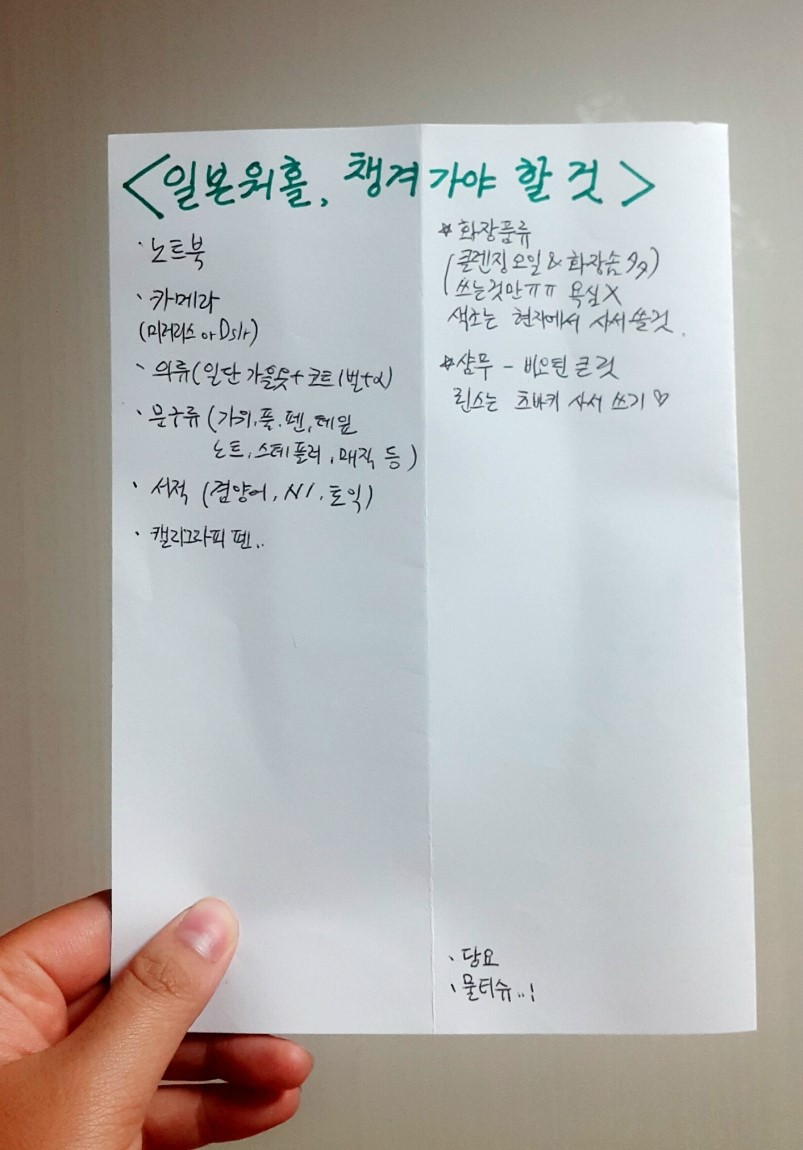 <일본워홀, 챙겨가야 할 것>
· 노트북
· 카메라
(미러리스 or Dslr)
· 의류(일단 가을옷+코트1벌+α)
· 문구류 (가위,풀,펜,테잎
노트,스테플러,매직 등)
· 서적 (겸양어, N1, 토익)
· 캘리그라피 펜..
* 화장품류
(클렌징오일 & 화장솜 多多)
쓰는것만ㅠㅠ 욕심X
색조는 현지에서 사서쓸것.
*샴푸 - 비오틴 큰 것
린스는 츠바키 사서 쓰기♡
· 담요
· 물티슈..!